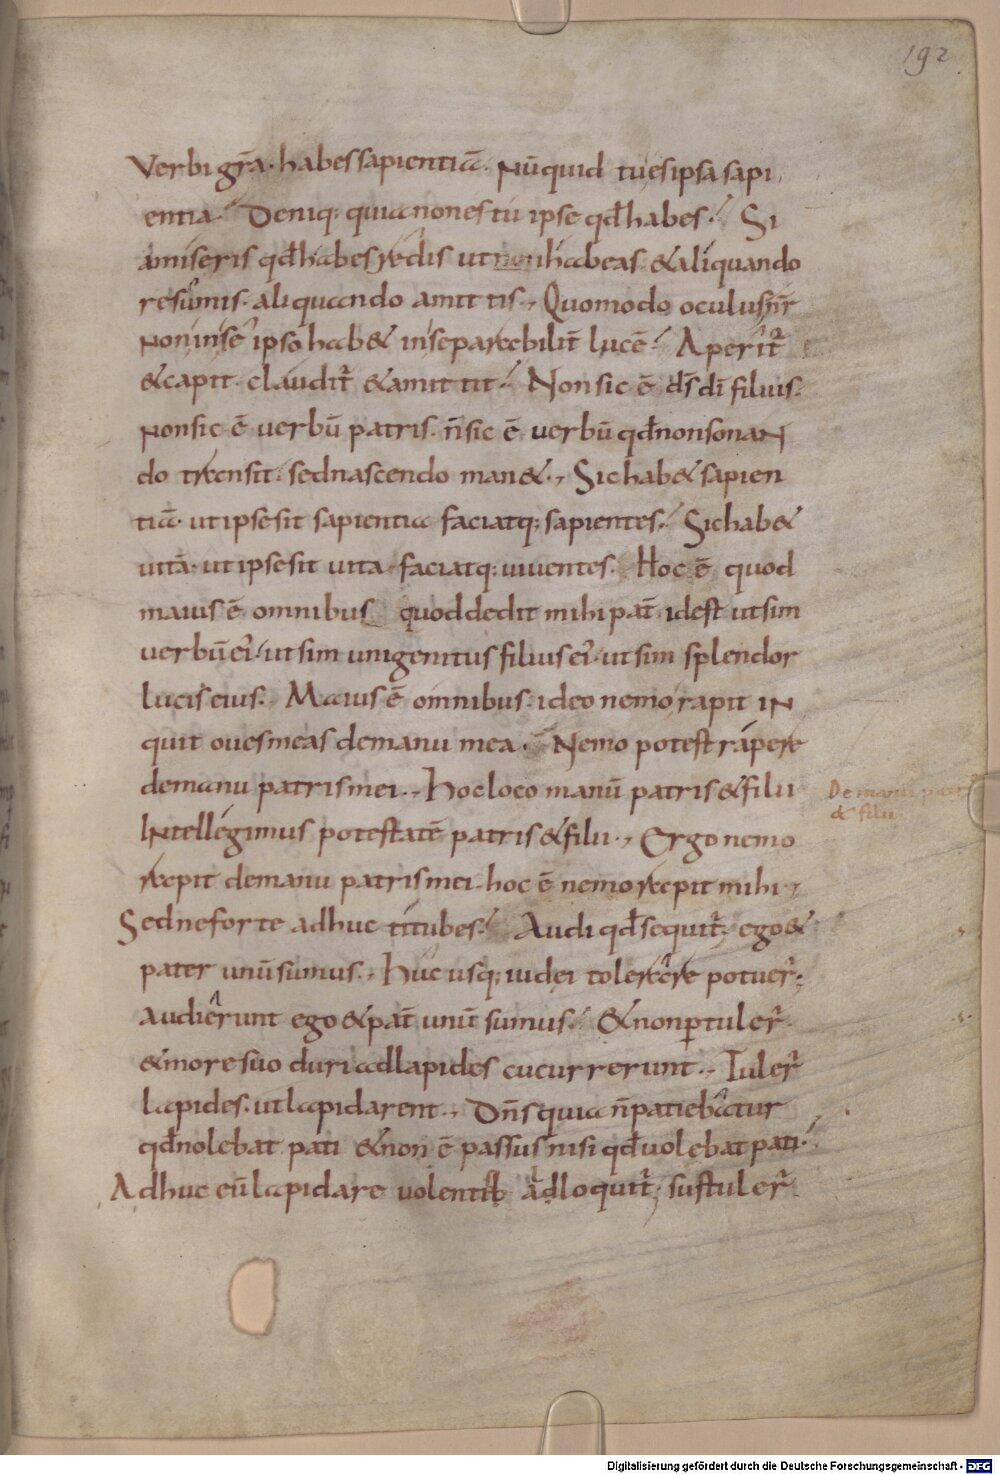 192
Verbi gr̄a· habes sapientiā· Nūquid tu es ipsa sapi
entia·́ Deniq; quia non es tu ipse qđ habes·́ Si
amiseris qđ habes redis ut non habeas· & aliquando
resumis· aliquando amittis·, Quomodo oculus nr̄
Non in se ipso hab& inseparabilit̄ lucē·́ Aperit᷑
& capit· claudit᷑ & amittit·́ Non sic ē d̄s dī filius·
Non sic ē uerbū patris· n̄ sic ē uerbū qđ non sonan
do transit· sed nascendo man&·, Sic hab& sapien
tiā· ut ipse sit sapientia faciatq; sapientes·́ Sic hab&
uitā· ut ipse sit uita· faciatq; uiuentes· Hoc ē quod
maius ē omnibus quod dedit mihi pat̄ id est ut sim
uerbū ei᷑· ut sim unigenitus filius ei᷑· ut sim splendor
lucis eius· Maius ē omnibus· ideo nemo rapit in
quit oues meas de manu mea· Nemo potest rapere
de manu patris mei·, Hoc loco manū patris & filii
Intellegimus potestatē patris & filii·, Ergo nemo
rapit de manu patris mei· hoc ē nemo rapit mihi·,
Sed ne forte adhuc titubes·́ Audi qđ sequit᷑· ego &
pater unū sumus·, Huc usq; iudei tolerare potuer̄;
Audierunt ego & pat̄ unū sumus·́ & non ꝑtuler̄·
& more suo duri ad lapides cucurrerunt·, Tuler̄
lapides· ut lapidarent·, Dn̄s quia n̄ patiebatur
qđ nolebat pati & non ē passus nisi qđ uolebat pati·́
Adhuc eū lapidare uolentib; adloquit᷑· sustuler̄
De manu
& filii
Digitalisierung gefördert durch die Deutsche Forschungsgemeinschaft - DFG